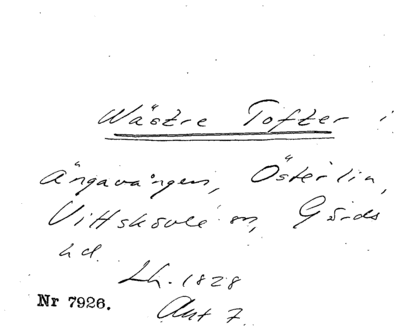 Wästre Tofter i
Ängavången, Österlin,
Vittskövle sn, Gärds
hd.
Lh. 1828
Akt 7
Nr 7926.